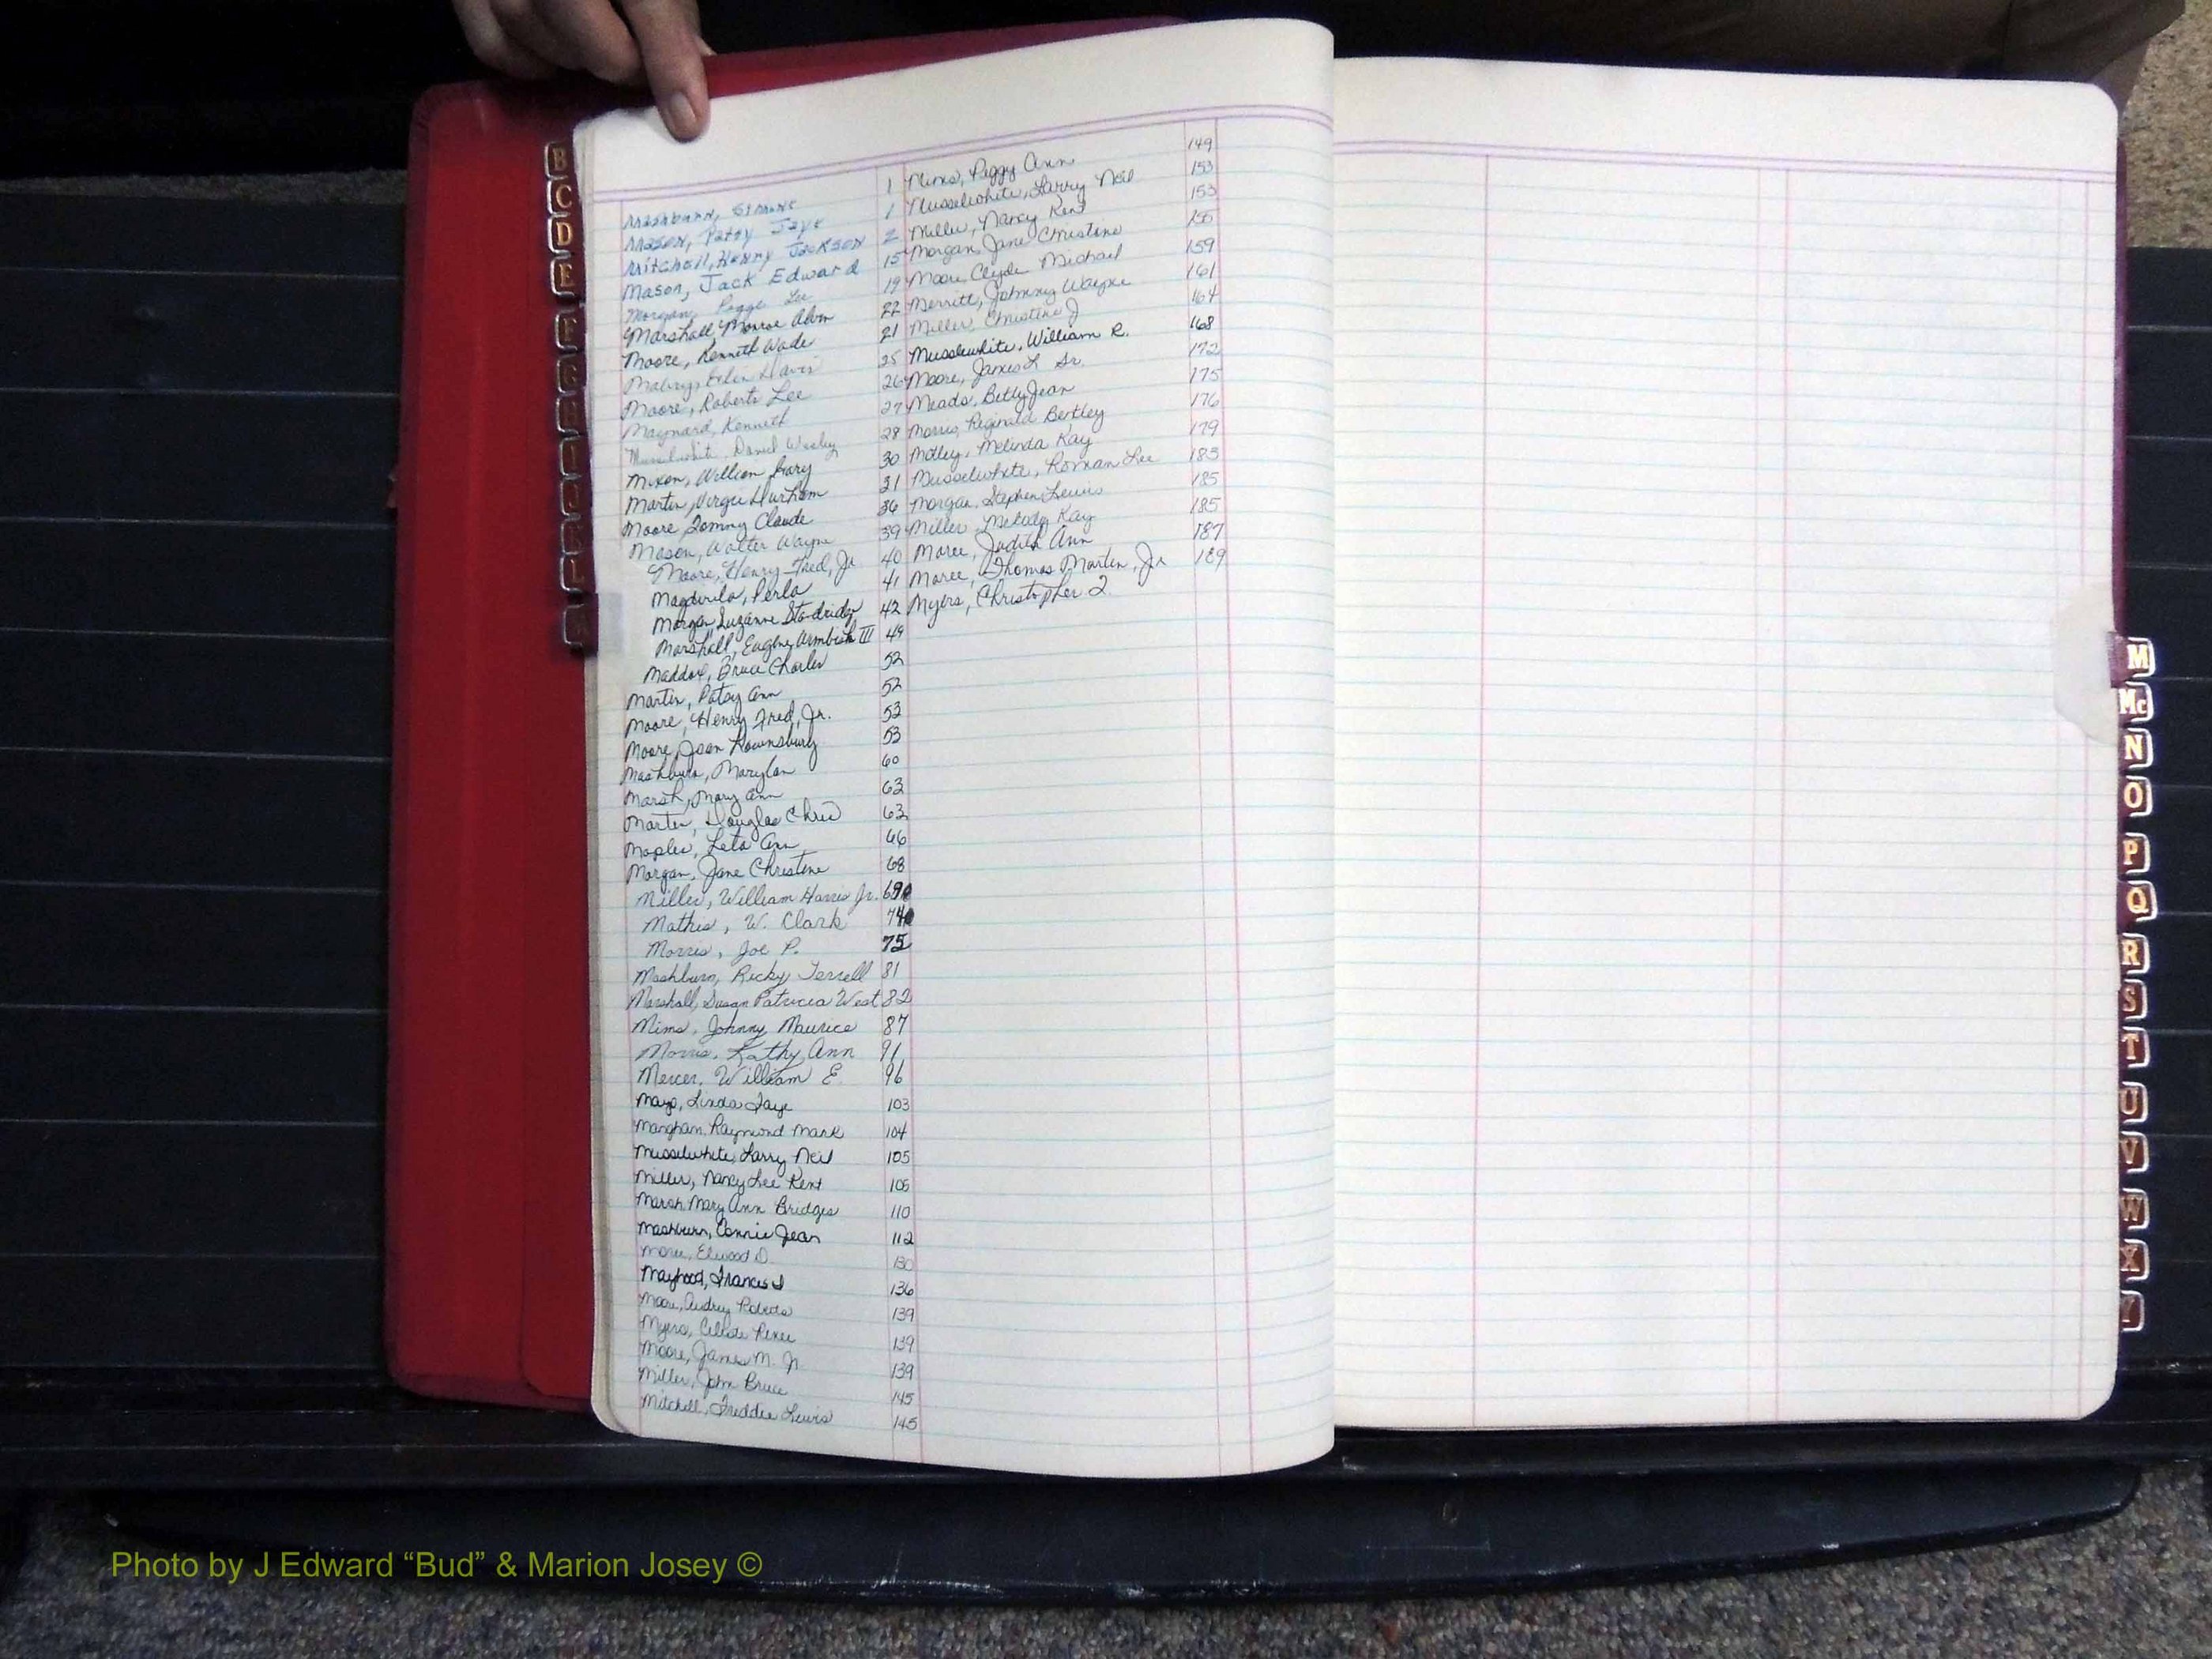 Mashburn,
Mason, Patsy Jaye 1
Mitchell, Henry Jackson 2
Mason, Jack Edward 15
Morgan, Lee 19
Marshall, Monroe Alvin 22
Moore, Kenneth Wade 21
Mabry, Davis 25
Moore, Roberts Lee 26
Maynard, Kenneth 27
Musselwhite, Daniel Wesley 28
Mixon, William Gary 30
Martin, Virgie Durham 31
Moore Tommy Claude 36
Mason, Walter Wayne 39
Moore, Henry Fred, Jr 40
Perla 41
Morgan Suzanne 42
Marshall, Eugene III 49
Maddox, Bruce Charles 52
Martin, Patsy Ann 52
Moore, Henry Fred, Jr. 53
Moore, Jean 53
Mashburn, Marylan 60
Marsh, Mary Ann 63
Martin, Douglas Chris 63
Maples, Leta Ann 66
Morgan, Jane Christine 68
Miller, William Harris Jr. 69
Mathis, W. Clark 74
Morris, Joe P. 75
Mashburn, Ricky Terrell 81
Marshall, Susan Patricia West 82
Mims, Johnny Maurice 87
Morris, Kathy Ann 91
Mercer, William E. 96
Mayo, Linda Faye 103
Mangham, Raymond Mark 104
Musselwhite, Larry Neil 105
Miller, Nancy Lee Kent 105
Marsh Mary Ann Bridges 110
Mashburn, Connie Jean 112
Elwood D. 130
Francis 136
Moore, Audrey Roberts 139
Myers, Celeste Renee 139
Moore, James M. Jr. 139
Miller, John Bruce 145
Mitchell, Freddie Lewis 145
Mims, Peggy Ann 149
Musselwhite, Larry Neil 153
Miller, Nancy Kent 153
Morgan, Jane Christine 155
Moore Clyde Michael 159
Merritt, Johnny Wayne 161
Miller, Christine J 164
Musselwhite, William R. 168
Moore, James L Sr. 172
Meads, Betty Jean 175
Morris, Reginald Bentley 176
Motley, Melinda Kay 179
Musselwhite, Roman Lee 183
Morgan, Stephen Lewis 185
Miller Melody Kay 185
Maree, Judith Ann 187
Maree, Thomas Martin, Jr 189
Myers, Christopher
B
C
D
E
F
G
H
I
J
K
L
M
M
Mc
N
O
P
Q
R
S
T
U
V
W
X
Photo by J Edward “Bud” & Marion Josey ©